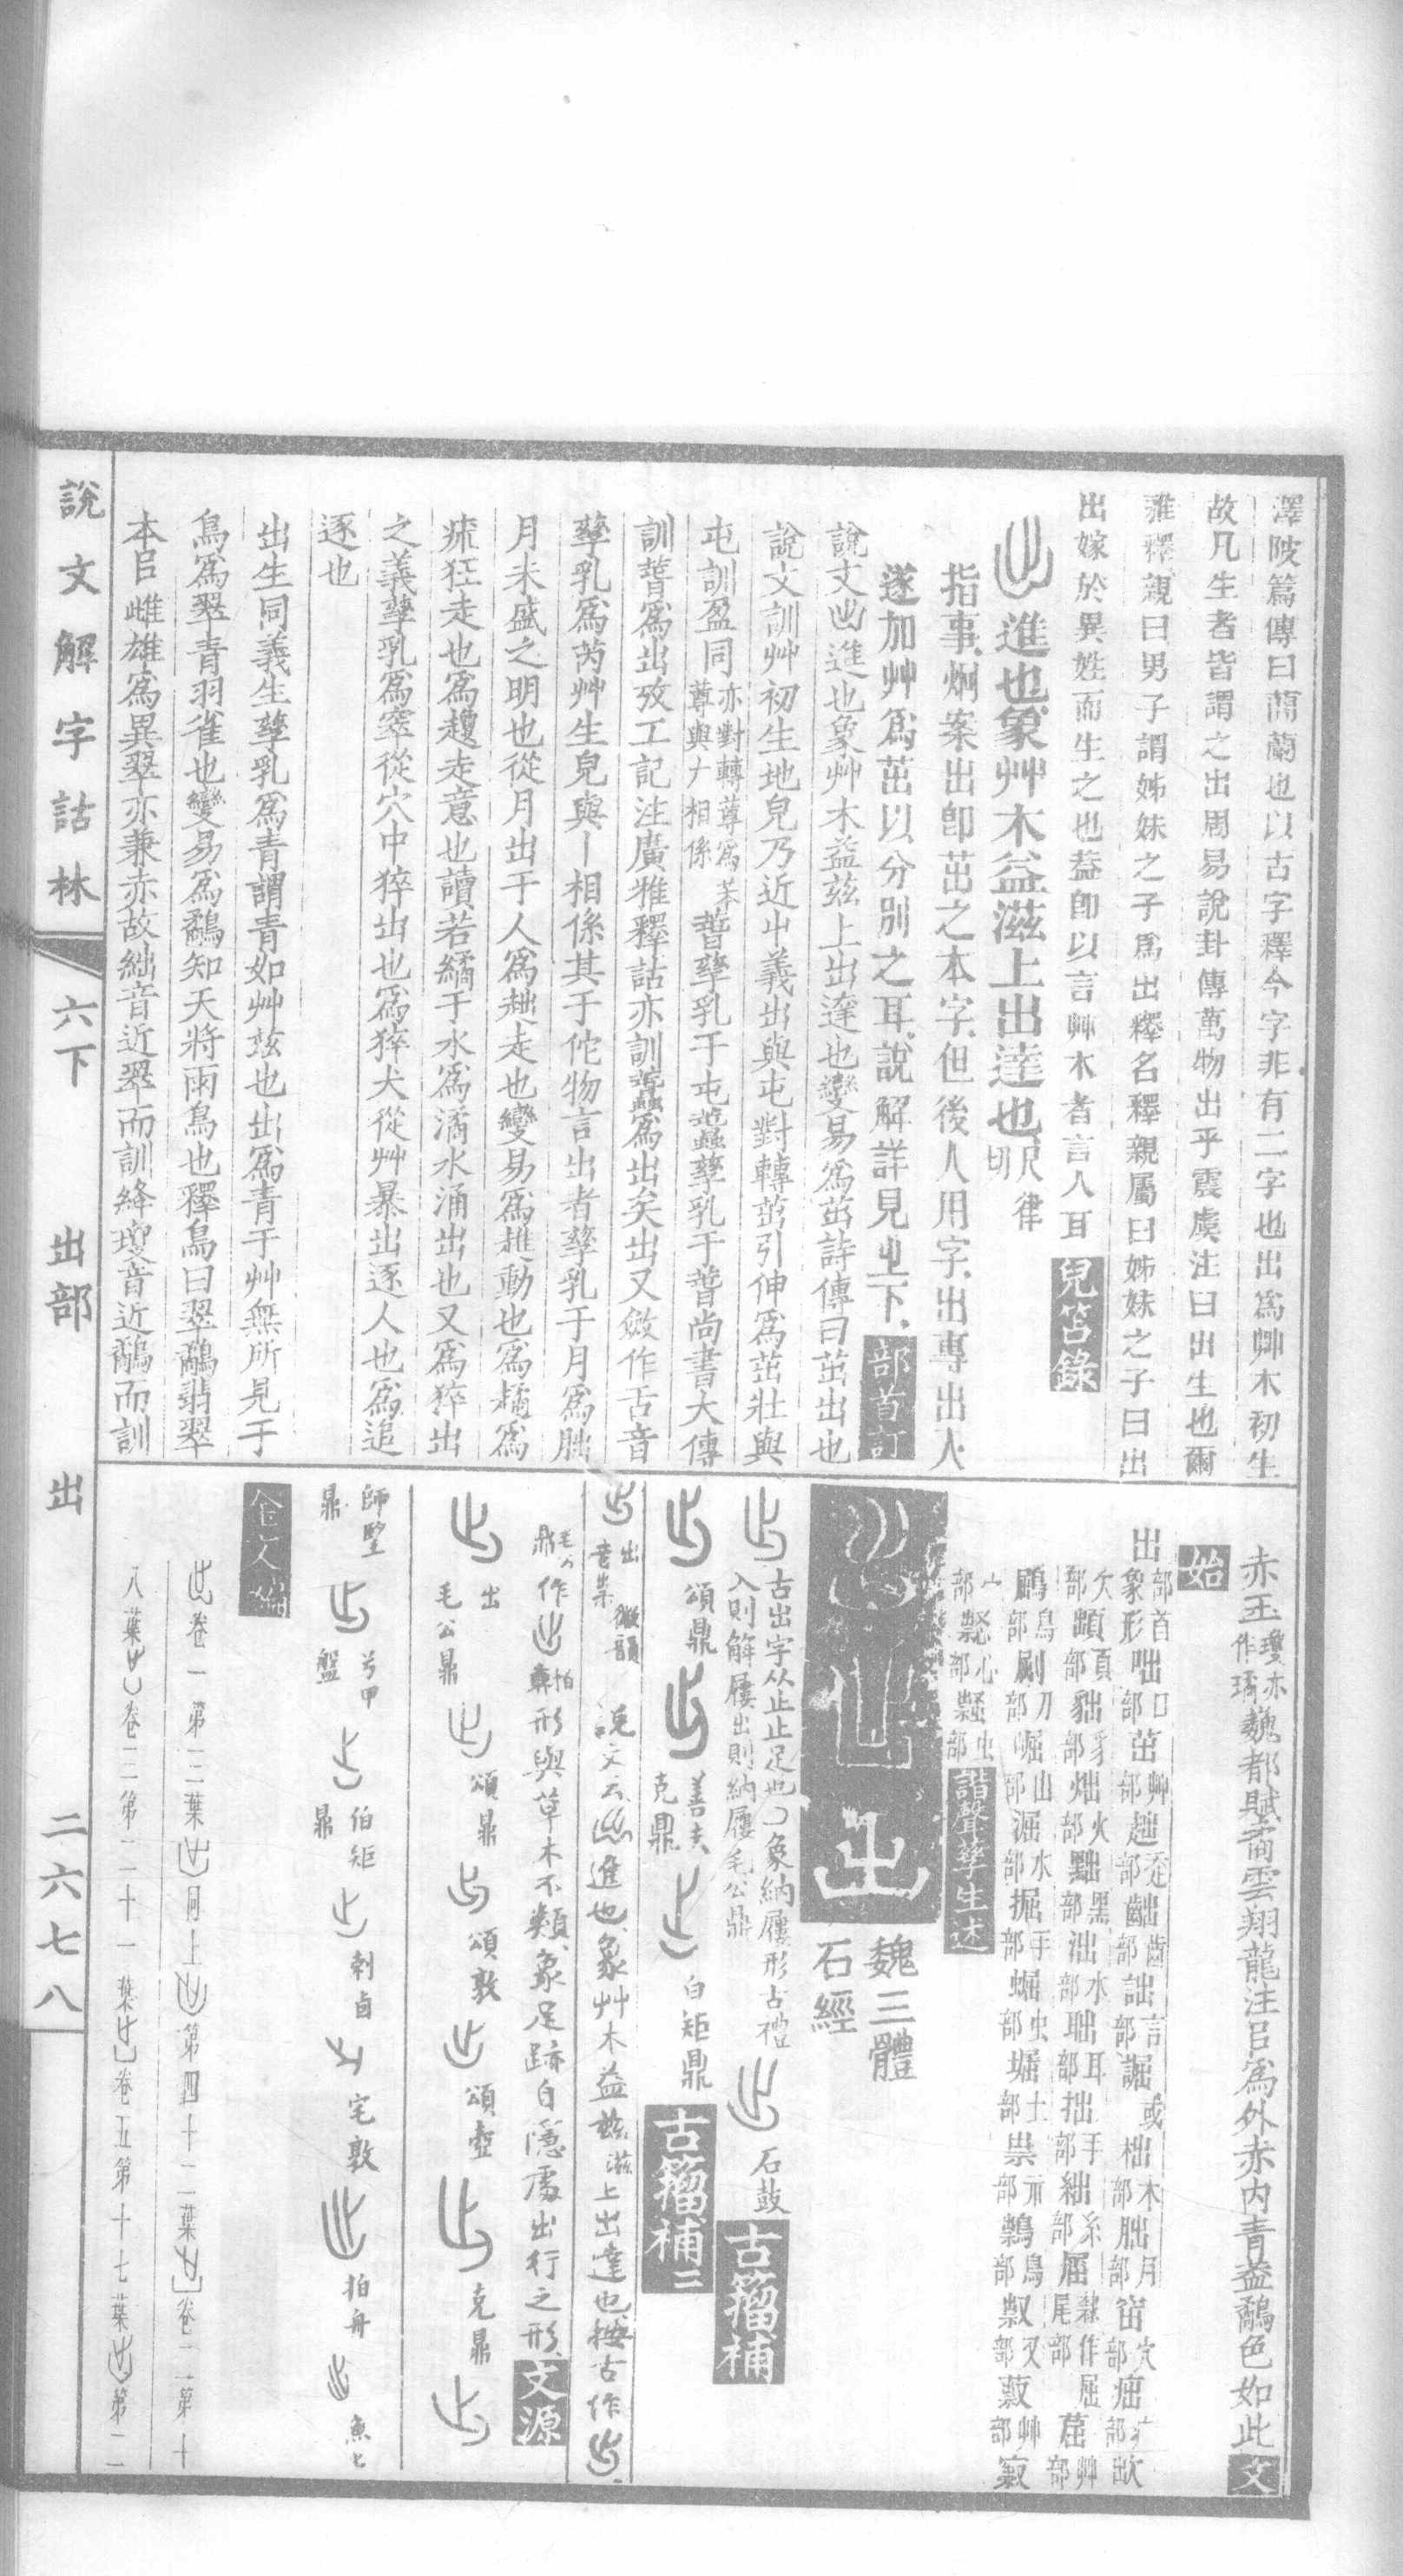 澤陂篇傳曰蕑蘭也以古字釋今字非有二字也出爲艸木初生
故凡生者皆謂之出周易說卦傳萬物出乎震虞注曰出生也爾
雅釋親曰男子謂姊妹之子爲出釋名釋親屬曰姊妹之子曰出
出嫁於異姓而生之也蓋卽以言艸木者言人耳 兒笘錄
進也象艸木益滋上出達也尺律切
指事炯案出卽茁之本字但後人用字出專出入
遂加艸爲茁以分別之耳說解詳見㞢下 部首訂
說文出進也象艸木益茲上出達也變易爲茁詩傳曰茁出也
說文訓艸初生地皃乃近屮義出與屯對轉茁引伸爲茁壯與
屯訓盈同 蠢孳乳于屯 尚書大傳
訓蠢爲出攷工記注廣雅釋詁亦訓蠢爲出矣出又斂作舌音
孳乳爲芮艸生皃與丨相係其于佗物言出者孳乳于月爲朏
月未盛之明也從月出于人爲趉走也變易爲趡動也爲趫爲
狂走也爲走意也讀若繘于水爲潏水涌出也又爲猝出
之義孳乳爲窣從穴中猝出也爲猝犬從艸暴出逐人也爲追
逐也
出生同義生孳乳爲青謂青如艸茲也出爲青于艸無所見于
鳥爲翠青羽雀也變易爲鷸知天將雨鳥也釋鳥曰翠鷸翡翠
本㠯雌雄爲異翠亦兼赤故絀音近翠而訓絳瓊音近鷸而訓
赤玉瓊亦作璚魏都賦矞雲翔龍注㠯爲外赤內青蓋鷸色如此 文
始
出部首象形 咄口部 茁艸部 趉走部 齣齒部 詘言部 誳或 柮木部 朏月部 窋穴部
欠部 頢頁部 貀豸部 炪火部 黜黑部 泏水部 聉耳部 拙手部 絀糸部 屈尾部隸作屈 䓛艸部
鶌鳥部 刷刀部 崛山部 淈水部 掘手部 蝹虫部 堀土部 祟示部 鳥部 叔又部 艸部
諧聲孳生述
魏三體石經
古出字从止止足也象納屨形古禮入則解屨出則納屨毛公鼎 石鼓 古籀補
頌鼎 善夫克鼎 白矩鼎 古籀補二
說文云進也象艸木益茲滋上出達也按古作
毛公鼎作 形與草木不類象足跡自隱處出行之形 文源
出毛公鼎 頌鼎 頌敦 頌壺 克鼎
師望鼎 兮甲盤 伯矩鼎 剌卣 宅敦 拍舟 魚匕
金文編
卷一第二葉 同上 第四十二葉 卷二第十
八葉 卷二第二十一葉 卷五第十七葉 第二
說文解字詁林 六下 出部 出 二六七八